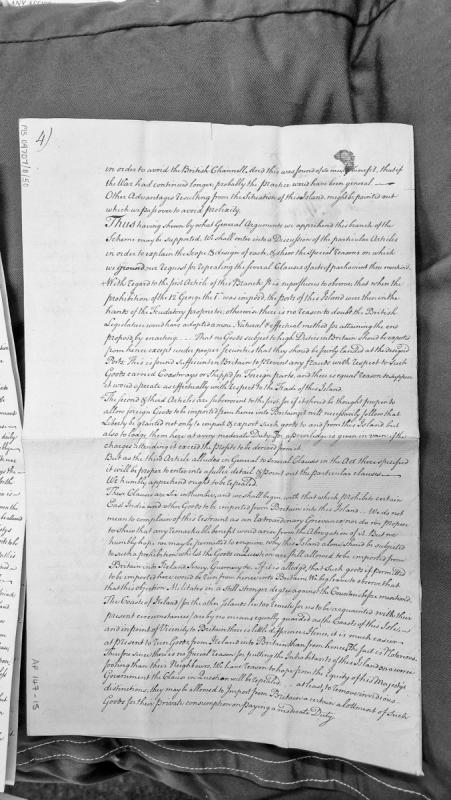 4)
MS 09707/8/50
in order to avoid the British Channell, and this was found of so much benefit, that if
the War had continued longer, probably the practice would have been general. —
Other Advantages resulting from the Situation of this Island might be pointed out
which we pass over to avoid prolixity.
Thus having shewn by what General Arguments we apprehend this branch of the
Scheme may be Supported, We shall enter into a Discussion of the particular Articles
in order to explain the Scope & design of each, & shew the Special reasons on which
we ground our request for repealing the several Clauses of acts of parliament they
With regard to the first Article of this Branch It is superfluous to observe that when the
prohibition of the 12 George the 1st was imposed, the ports of this Island were then in the
hands of the Feudatory proprietor, otherwise there is no reason to doubt the British
Legislature would have adopted a more Natural & effectual method for attaining the end
proposed by enacting . . . That no Goods subject to high Duties in Britain should be exported
from hence except under proper Securities that they should be fairly landed at the designed
Ports. This is found sufficient in Britain to prevent any Frauds with respect to such
Goods carried Coastways or Shipped for Foreign parts, and there is equal reason to suppose
it would operate as effectually with respect to the Trade of this Island.
The second & third Articles are subservient to the first for if it should be thought proper to
allow foreign Goods to be imported from hence into Britain, it will necessarily follow that
Liberty be granted not only to import & export such goods to and from this Island but
also to lodge them here at very moderate Duty, for a priviledge is given in vain if the
charges attending it exceed the profits to be derived from it.
But as the third Article alludes in General to several Clauses in the Act there specified
it will be proper to enter into a fuller detail, & point out the particular clauses —
We humbly apprehend ought to be repealed.
These Clauses are Six in Number, and we shall begin with that which prohibits certain
East India and other Goods to be imported from Britain into this Island. — We do not
mean to complain of this restraint as an Extraordinary Grievance, nor do we propose
to shew that any remarkable benefit would arise from the Abrogation of it. But we
humbly hope we may be permitted to enquire why this Island alone should be subjected
to such a prohibition whilst the Goods in Question are still allowed to be imported from
Britain into Ireland, Jersey, Guernsey &c. If it is alledged that such goods if permitted
to be imported here would be run from hence into Britain We beg leave to observe, that
this objection Militates in a still stronger degree against the Countries before mentioned
The Coasts of Ireland (for the other Islands lie too remote for us to be acquainted with their
present circumstances) are by no means equally guarded as the Coasts of this Isle,
and in point of Vicinity to Britain there is little difference: Hence, it is much easier
at present to run Goods from Ireland into Britain than from hence, the fact is Notorious.
Therefore since there is no special reason for putting the Inhabitants of this Island on a worse
footing than their Neighbours, We have reason to hope from the Equity of his Majesty's
Government the Clause in Question will be repealed at least to remove invidious
distinctions, they may be allowed to Import from Britain a certain allotment of Such
Goods for their private consumption on paying a moderate Duty.
AP 147-15